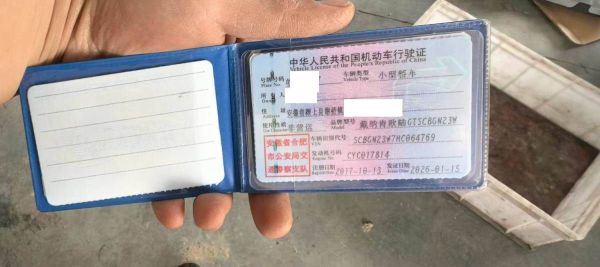 中华人民共和国机动车行驶证
Vehicle License of the People's Republic of China
号牌号码 车辆类型 小型轿车
Plate No. Vehicle Type
所有人
Owner
住址 安徽省颍上县谢桥镇
Address
使用性质 非营运 品牌型号 戴纳肯欧陆GTSCBGN23W
Use Character Model
安徽省合肥
市公安局交
通警察支队
车辆识别代号 SCBGN23W7HC064769
VIN
发动机号码 CYC017814
Engine No.
注册日期 2017-10-13 发证日期 2026-01-13
Register Date Issue Date